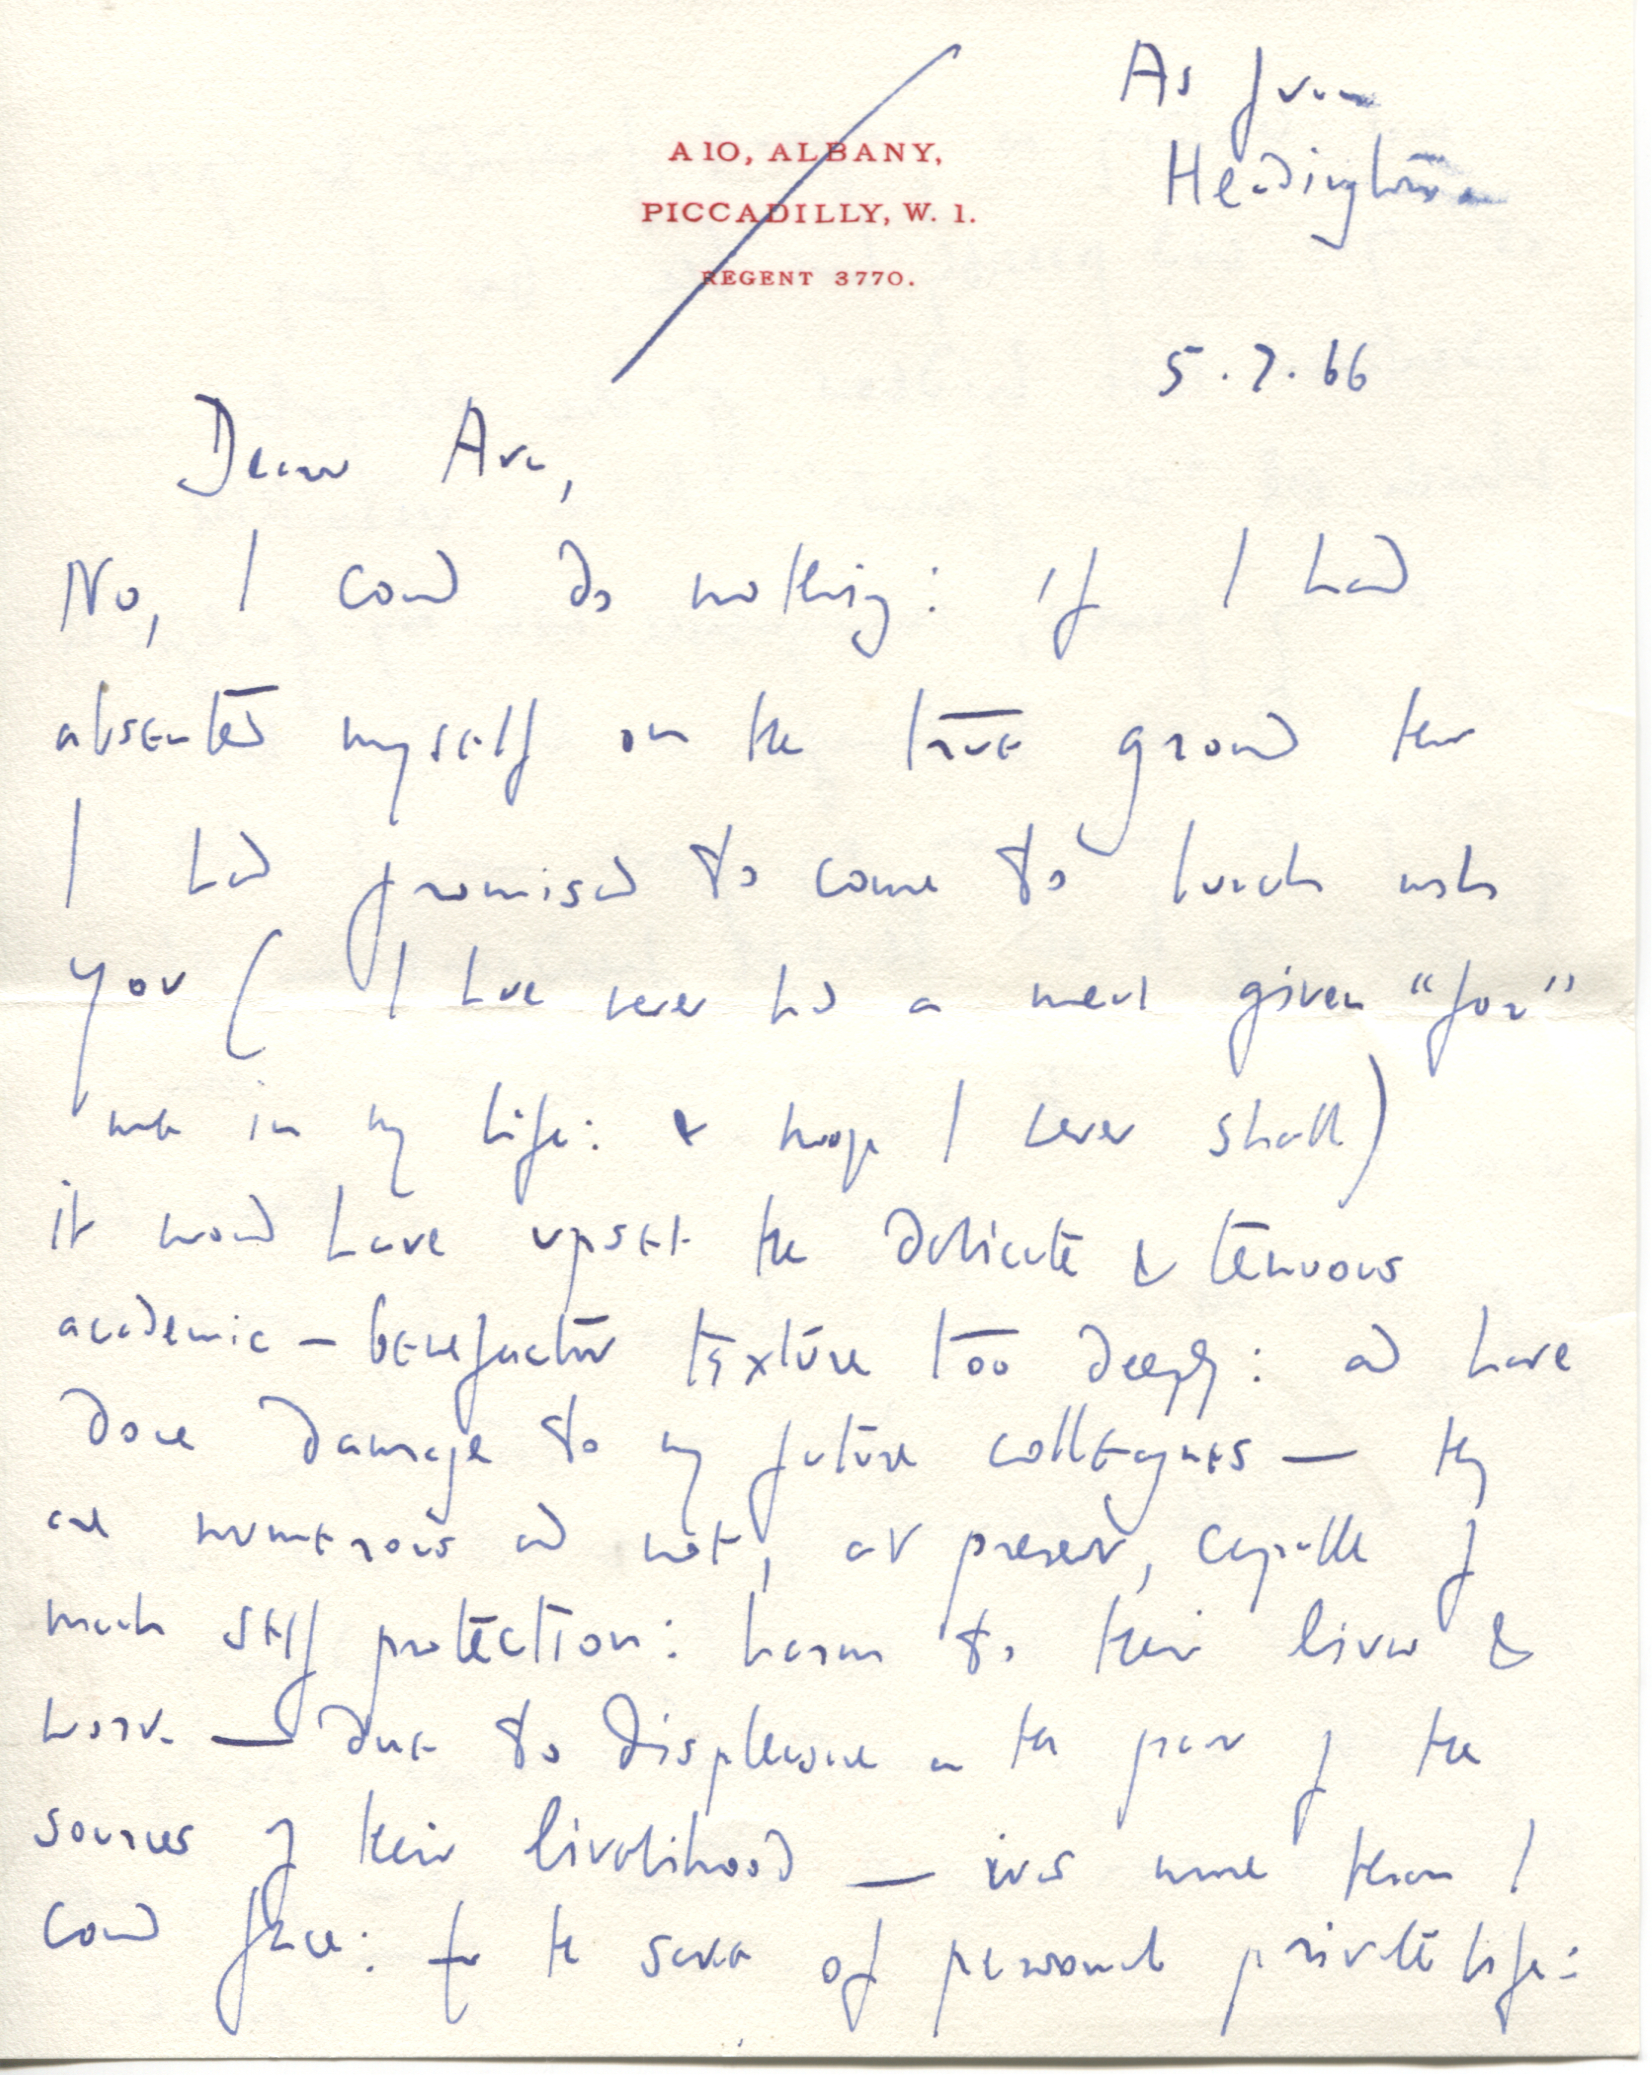 As from
Headington
A 10, ALBANY,
PICCADILLY, W. 1.
REGENT 3770.
5.7.66
Dear Ava,
No, I coud do nothing: if I had
absented myself on the true ground that
I had promised to come to lunch with
you (I have never had a meal given "for"
me in my life: & hope I never shall)
it woud have upset the delicate & tenuous
academic – benefactor texture too deeply: and have
done damage to my future colleagues — they
are numerous and not, at present, capable of
much self protection: harm to their lives &
work — due to displeasure on the part of the
sources of their livelihood — was more than I
coud face: for the sake of personal private life: